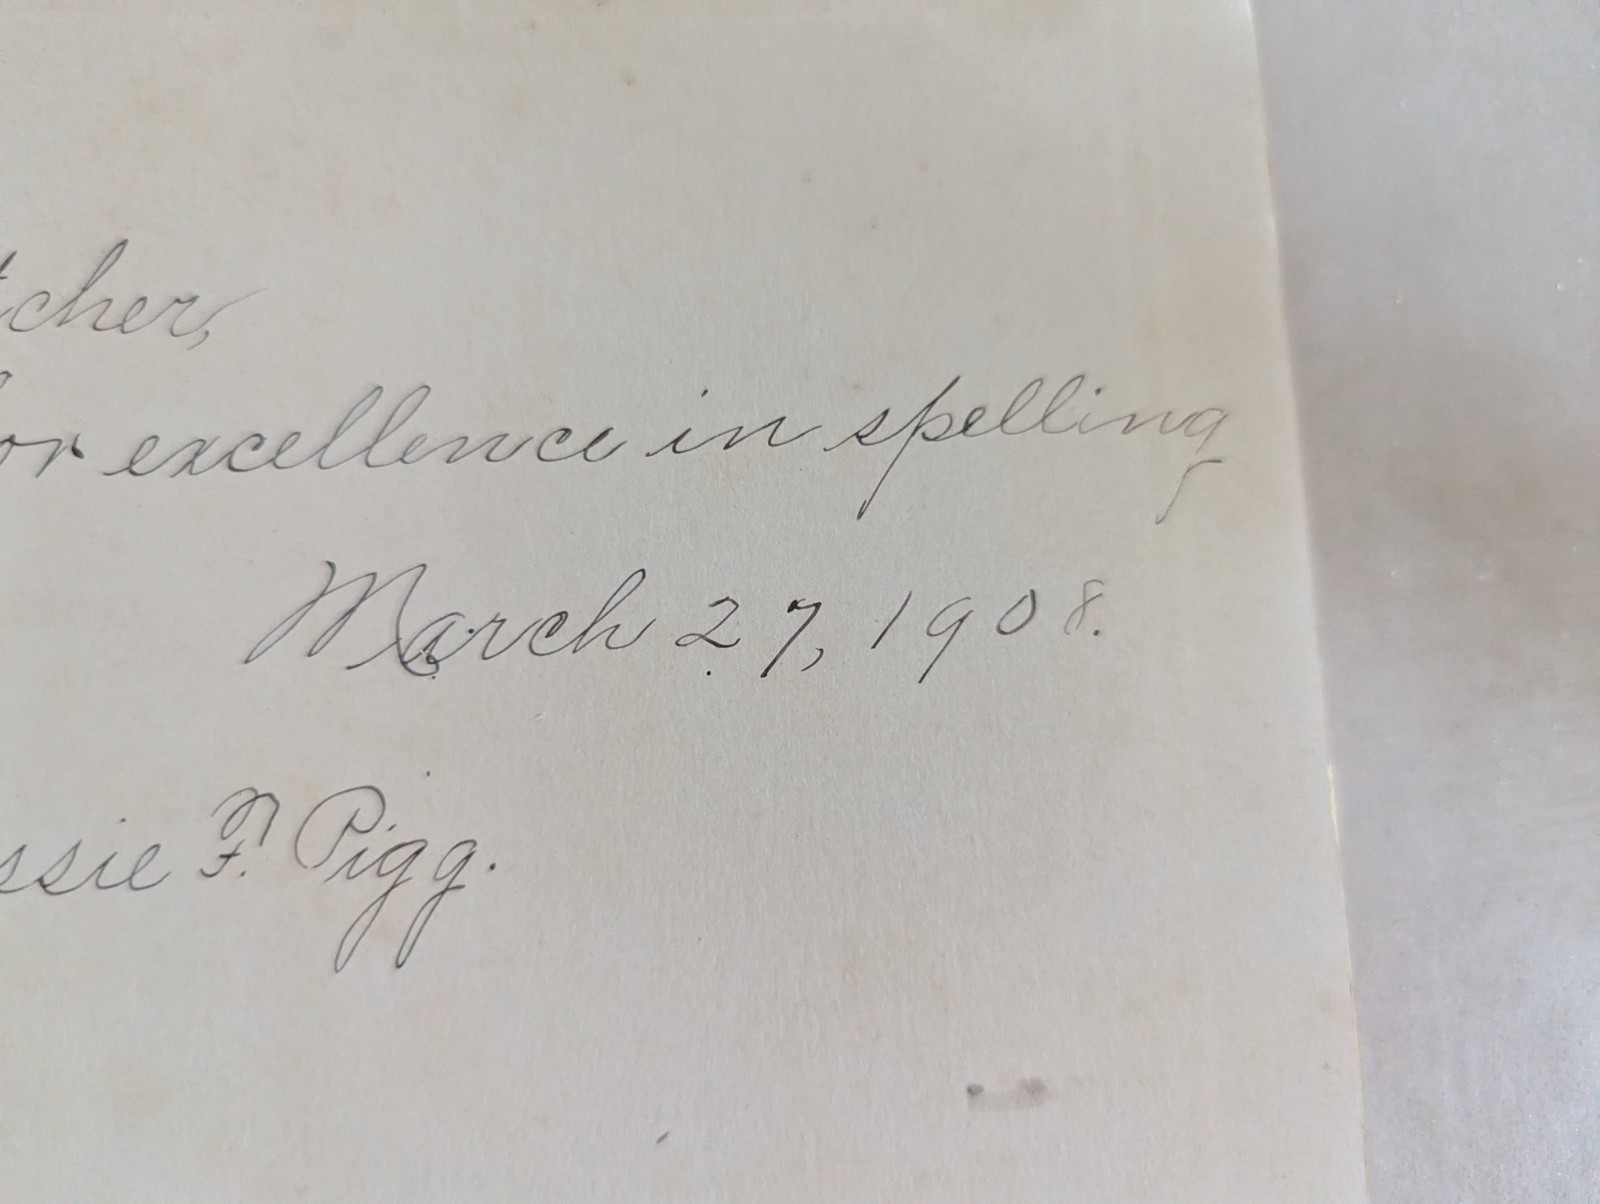 tcher,
for excellence in spelling
March 27, 1908.
ssie F. Pigg.